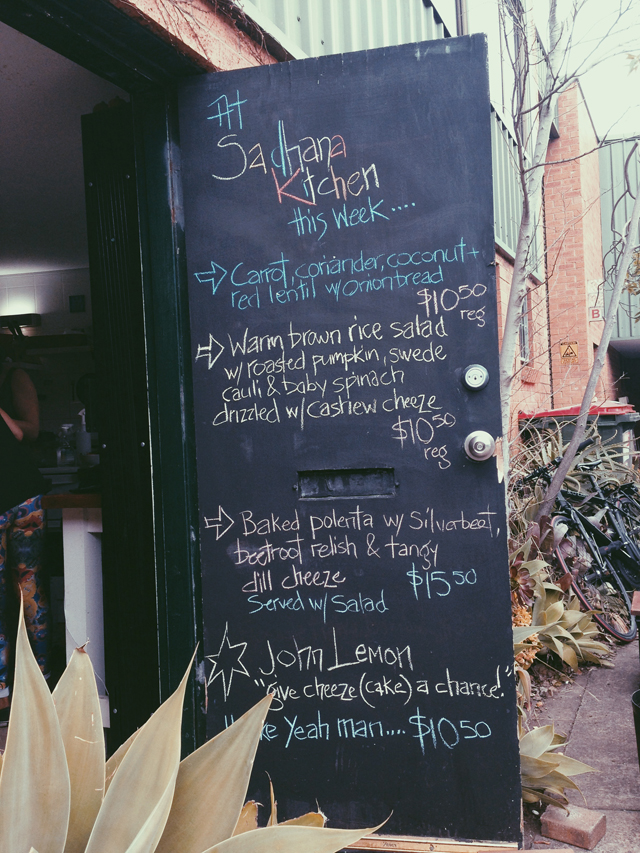 At
Sadhana
Kitchen
this week....
Carrot, coriander, coconut +
red lentil w/onion bread
$10⁵⁰
reg
Warm brown rice salad
w/ roasted pumpkin, swede
cauli & baby spinach
drizzled w/cashew cheeze
$10⁵⁰
reg
Baked polenta w/ Silverbeet,
beetroot relish & tangy
dill cheeze $15⁵⁰
Served w/ Salad
John Lemon
"give cheeze (cake) a chance!"
Yeah man.... $10⁵⁰
B